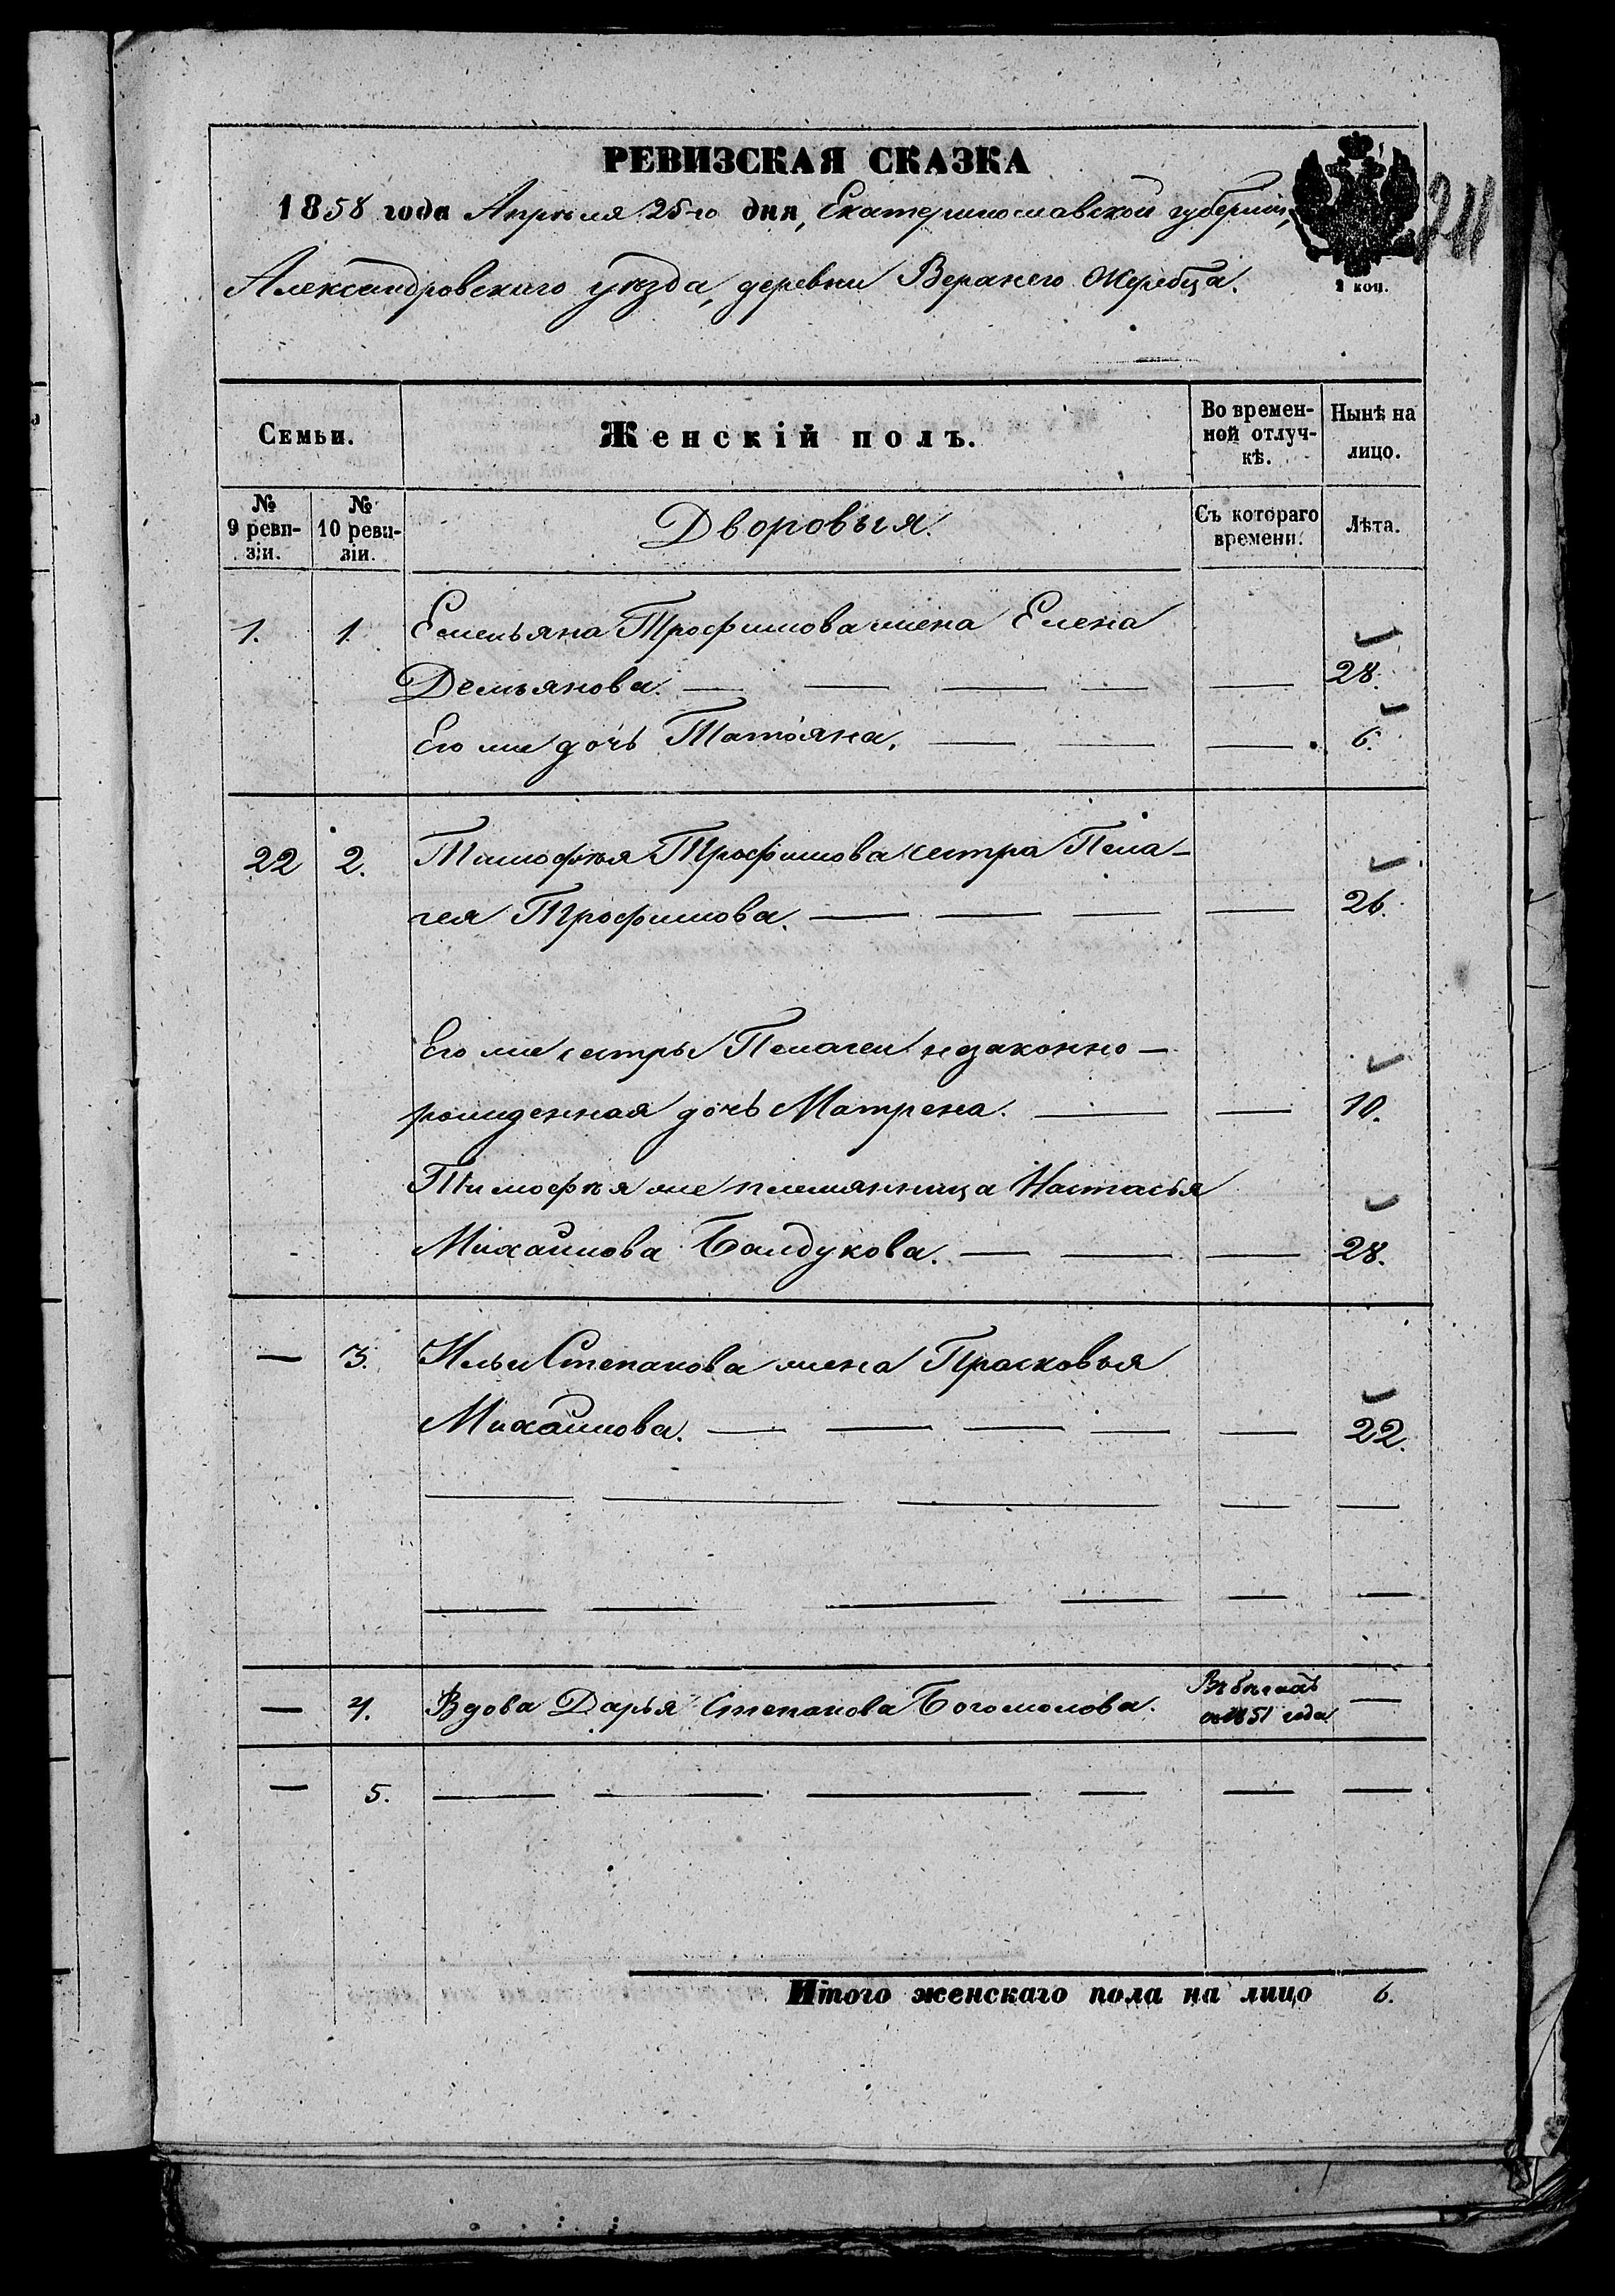 РЕВИЗСКАЯ СКАЗКА
1858 года Апрѣля 25го дня, Екатеринославской губерніи,
Александровскаго уѣзда, деревни Верхнего Жеребца.
211
Семьи.
Женскій полъ.
Во времен-
ной отлуч-
кѣ.
Нынѣ на
лицо.
№
9 реви-
зіи.
№
10 реви-
зіи.
Дворовыя.
Съ котораго
времени.
Лѣта.
1. 1. Емельяна Трофимова жена Елена
Демьянова. — — — — — 28.
Его же дочь Татьяна. — — — 6.
22 2. Тимофѣя Трофимова сестра Пела-
гея Трофимова. — — — — 26.
Его же сестры Пелагеи незаконно-
рожденная дочь Матрена. — — 10.
Тимофѣя же племянница Настасья
Михайлова Балдукова. — — — 28.
— 3. Ильи Степанова жена Прасковья
Михайлова. — — — — — 22.
— — — — —
— — — — — —
— 4. Вдова Дарья Степанова Богомолова. Въ бѣгахъ
съ 1851 года —
— 5. — — — — — —
Итого женскаго пола на лицо 6.